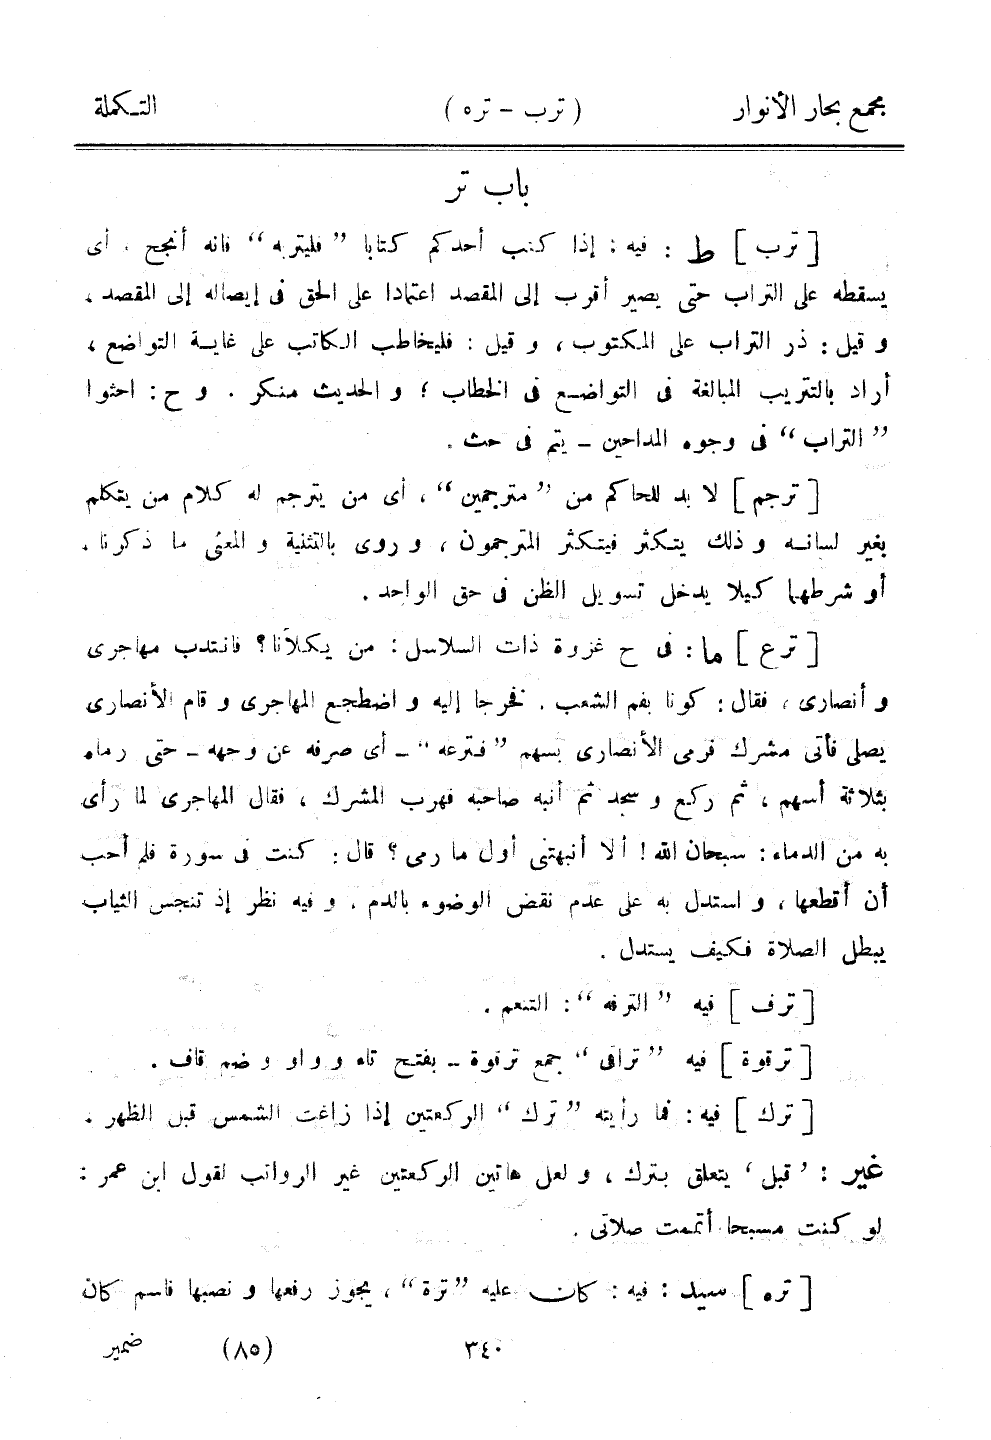 مجمع بحار الأنوار (ترب - تره) التكملة
باب تر
[ترب] ط : فيه : إذا كتب أحدكم كتابا ”فليتربه“ فانه أنجح ، أى
يسقطه على التراب حتى يصير أقرب إلى المقصد اعتمادا على الحق فى إيصاله إلى المقصد ،
و قيل : ذر التراب على المكتوب ، و قيل : فليخاطب الكاتب على غاية التواضع ،
أراد بالتتريب المبالغة فى التواضع فى الخطاب ؛ و الحديث منكر . و ح : احثوا
”التراب“ فى وجوه المداحين – يتم فى حث .
[ترجم] لا بد للحاكم من ”مترجمين“ ، أى من يترجم له كلام من يتكلم
بغير لسانه و ذلك يتكثر فيتكثر المترجمون ، و روى بالتثنية و المعنى ما ذكرنا .
أو شرطهما كيلا يدخل تسويل الظن فى حق الواحد .
[ترع] ما : فى ح غزوة ذات السلاسل : من يكلأنا ؟ فانتدب مهاجرى
و أنصارى ، فقال : كونا بفم الشعب . فخرجا إليه و اضطجع المهاجرى و قام الأنصارى
يصلى فأتى مشرك فرمى الأنصارى بسهم ”فترعه“ – أى صرفه عن وجهه – حتى رماه
بثلاثة أسهم ، ثم ركع و سجد ثم أنبه صاحبه فهرب المشرك ، فقال المهاجرى لما رأى
به من الدماء : سبحان الله ! ألا أنبهتنى أول ما رمى ؟ قال : كنت فى سورة فلم أحب
أن أقطعها ، و استدل به على عدم نقض الوضوء بالدم . و فيه نظر إذ تنجس الثياب
يبطل الصلاة فكيف يستدل .
[ترف] فيه ”الترفه“ : التنعم .
[ترقوة] فيه ”تراقى“ جمع ترقوة – بفتح تاء و واو و ضم قاف .
[ترك] فيه : فما رأيته ”ترك“ الركعتين إذا زاغت الشمس قبل الظهر .
غير : ’قبل‘ يتعلق بترك ، و لعل هاتين الركعتين غير الرواتب لقول ابن عمر :
لو كنت مسبحا أتممت صلاتى .
[تره] سيد : فيه : كان عليه ”ترة“ ، يجوز رفعها و نصبها فاسم كان
٣٤٠ (٨٥) ضمير